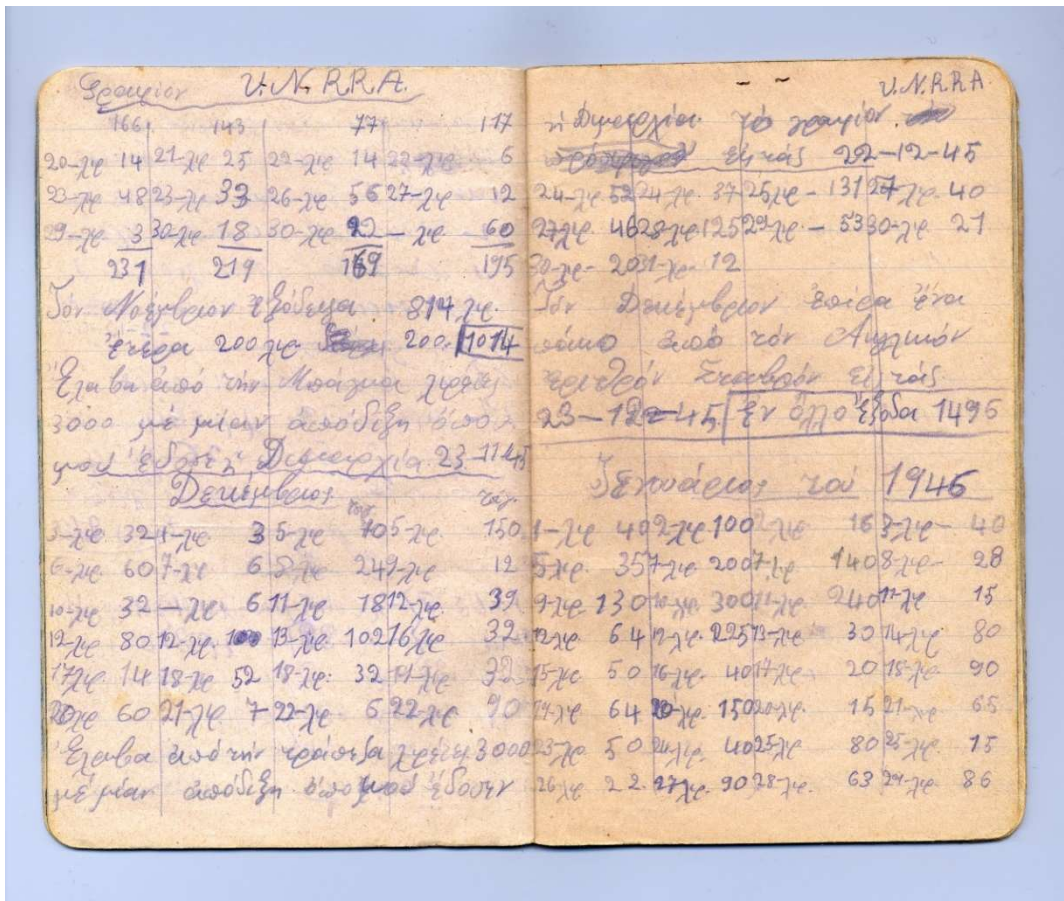 Γραφίον U.N.R.R.A.
166 143 77 117
20-λιρ 14 21-λιρ 25 22-λιρ 14 22-λιρ 6
23-λιρ 48 23-λιρ 33 26-λιρ 56 27-λιρ 12
29-λιρ 3 30-λιρ 18 30-λιρ 22 — λιρ 60
231 219 169 195
Τόν Νοέμβριον εξόδεψα 814 λιρ.
έτερα 200 λιρ 200. 1014
Έλαβα από την Μπάγκα λιρέτες
3000 μέ μίαν απόδιξη όπο
μού έδοσε η Διμαρχία. 23-11-45
Δεκέμβριος
3-λιρ 32 4-λιρ 3 5-λιρ 70 5-λιρ. 150
6-λιρ. 60 7-λιρ 6 8-λιρ 24 9-λιρ 12
10-λιρ 32 — λιρ 6 11-λιρ 18 12-λιρ. 39
12-λιρ 80 12-λιρ. 100 13-λιρ 102 16-λιρ 32
17-λιρ 14 18-λιρ 52 18-λιρ: 32 19-λιρ 32
20-λιρ 60 21-λιρ. 7 22-λιρ 6 22-λιρ 90
Έλαβα από τήν τράπεζα λιρέτες 3000
μέ μίαν απόδιξη όπο μού έδοσεν
U.N.R.R.A
η Διμαρχία. τό γραφίον
εις τάς 22-12-45
24-λιρ 52 24-λιρ. 37 25 λιρ - 131 27-λιρ. 40
27 λιρ. 46 28-λιρ. 125 29 λιρ. - 53 30-λιρ. 21
30-λιρ- 20 31-λιρ- 12
Τόν Δεκέμβριον επίρα ένα
πάκο από τόν Αγγλικόν
ερυθρόν Σταυβρόν εις τάς
23-12-45. Εν όλλο έξοδα 1496
Γενουάριος τού 1946
1-λιρ. 40 2-λιρ 100 2-λιρ 16 3-λιρ- 40
5-λιρ. 35 7-λιρ 200 7-λιρ 140 8-λιρ- 28
9-λιρ 130 10-λιρ. 300 11-λιρ. 240 11-λιρ 15
12-λιρ. 64 12-λιρ. 225 13-λιρ. 30 14-λιρ 80
15-λιρ 50 16-λιρ. 40 17-λιρ. 20 18-λιρ. 90
19-λιρ 64 20-λιρ. 150 20-λιρ. 15 21-λιρ. 65
23-λιρ 50 24-λιρ. 40 25-λιρ 80 25-λιρ. 15
26-λιρ 22. 27-λιρ. 90 28-λιρ. 63 29-λιρ. 86